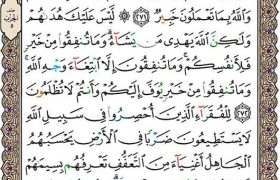 وَٱللَّهُ بِمَا تَعْمَلُونَ خَبِيرٌ ٢٧١ لَّيْسَ عَلَيْكَ هُدَىٰهُمْ
وَلَٰكِنَّ ٱللَّهَ يَهْدِى مَن يَشَآءُ ۗ وَمَا تُنفِقُوا۟ مِنْ خَيْرٍ
فَلِأَنفُسِكُمْ ۚ وَمَا تُنفِقُونَ إِلَّا ٱبْتِغَآءَ وَجْهِ ٱللَّهِ ۚ
وَمَا تُنفِقُوا۟ مِنْ خَيْرٍ يُوَفَّ إِلَيْكُمْ وَأَنتُمْ لَا تُظْلَمُونَ
٢٧٢ لِلْفُقَرَآءِ ٱلَّذِينَ أُحْصِرُوا۟ فِى سَبِيلِ ٱللَّهِ
لَا يَسْتَطِيعُونَ ضَرْبًا فِى ٱلْأَرْضِ يَحْسَبُهُمُ
ٱلْجَاهِلُ أَغْنِيَآءَ مِنَ ٱلتَّعَفُّفِ تَعْرِفُهُم بِسِيمَٰهُمْ